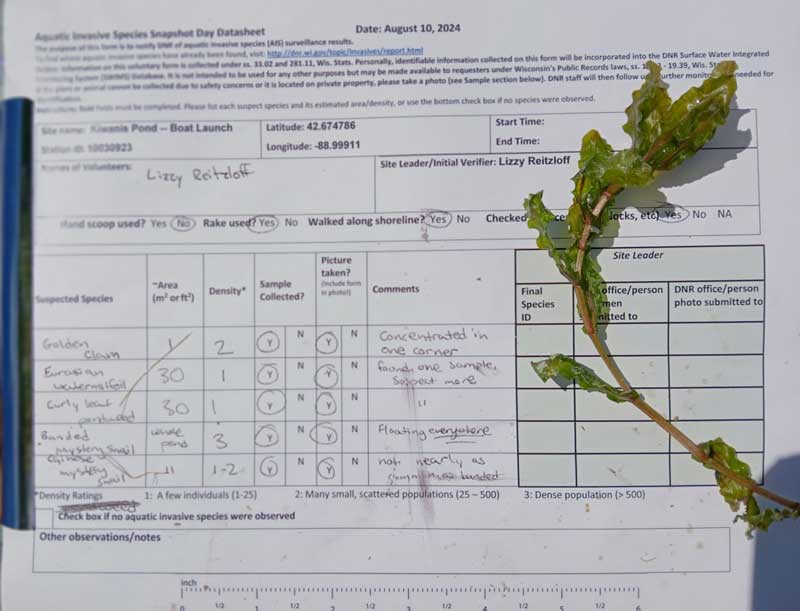 Aquatic Invasive Species Snapshot Day Datasheet Date: August 10, 2024
The purpose of this form is to notify DNR of aquatic invasive species (AIS) surveillance results.
have already been found, visit: http://dnr.wi.gov/topic/invasives/report.html
Information on this voluntary form is collected under ss. 33.02 and 281.11, Wis. Stats. Personally, identifiable information collected on this form will be incorporated into the DNR Surface Water Integrated
Database. It is not intended to be used for any other purposes but may be made available to requesters under Wisconsin's Public Records laws, ss. - 19.39, Wis.
cannot be collected due to safety concerns or it is located on private property, please take a photo (see Sample section below). DNR staff will then follow needed for
fields must be completed. Please list each suspect species and its estimated area/density, or use the bottom check box if no species were observed.
Site name: Kiwanis Pond -- Boat Launch Latitude: 42.674786 Start Time:
Station ID: 10030923 Longitude: -88.99911 End Time:
Names of Volunteers: Lizzy Reitzloff Site Leader/Initial Verifier: Lizzy Reitzloff
Hand scoop used? Yes No Rake used? Yes No Walked along shoreline? Yes No Checked etc) Yes No NA
Site Leader
Suspected Species ~Area (m² or ft²) Density* Sample Collected? Picture taken? (include form in photo!) Comments Final Species ID office/person DNR office/person photo submitted to
Golden Clam 1 2 Y N Y N Concentrated in one corner
Eurasian watermilfoil 30 1 Y N Y N found one sample, suspect more
Curly leaf pondweed 30 1 Y N Y N "
Banded mystery snail whole pond 3 Y N Y N Floating everywhere
Chinese mystery snail " 1-2 Y N Y N not nearly as banded
*Density Ratings 1: A few individuals (1-25) 2: Many small, scattered populations (25 – 500) 3: Dense population (> 500)
Check box if no aquatic invasive species were observed
Other observations/notes
inch
0 1/2 1 1/2 2 1/2 3 1/2 4 1/2 5 1/2 6